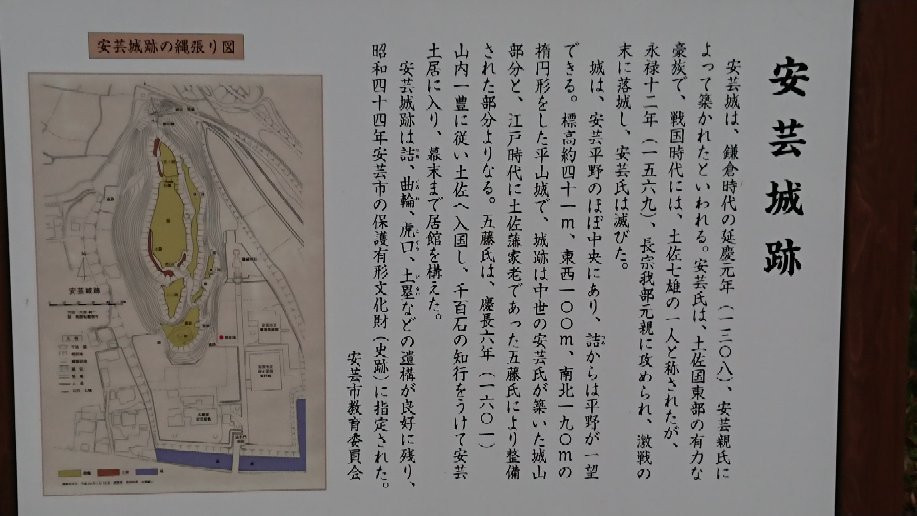 安芸城跡
安芸城は、鎌倉時代の延慶元年(一三〇八)、安芸親氏に
よって築かれたといわれる。安芸氏は、土佐国東部の有力な
豪族で、戦国時代には、土佐七雄の一人と称されたが、
永禄十二年(一五六九)、長宗我部元親に攻められ、激戦の
末に落城し、安芸氏は滅びた。
城は、安芸平野のほぼ中央にあり、詰からは平野が一望
できる。標高約四十一m、東西一〇〇m、南北一九〇mの
楕円形をした平山城で、城跡は中世の安芸氏が築いた城山
部分と、江戸時代に土佐藩家老であった五藤氏により整備
された部分よりなる。五藤氏は、慶長六年(一六〇一)
山内一豊に従い土佐へ入国し、千百石の知行をうけて安芸
土居に入り、幕末まで居館を構えた。
安芸城跡は詰、曲輪、虎口、土塁などの遺構が良好に残り、
昭和四十四年安芸市の保護有形文化財(史跡)に指定された。
安芸市教育委員会
安芸城跡の縄張り図
安芸城跡